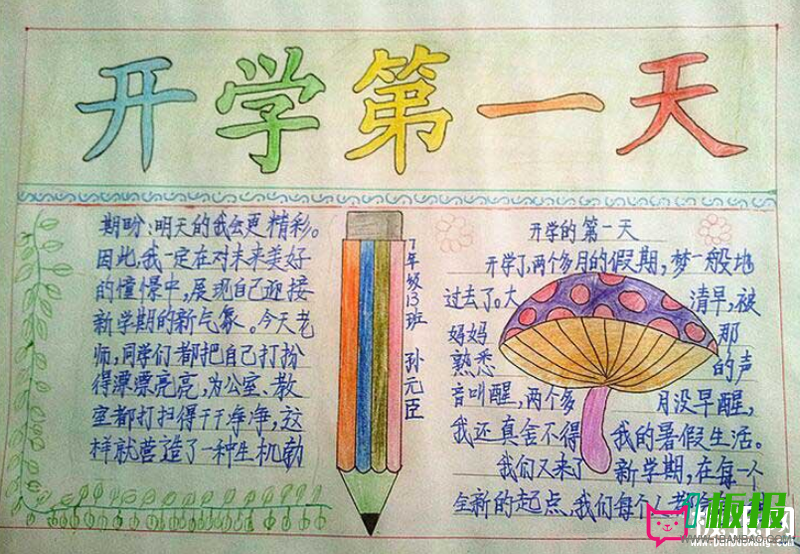 开学第一天
期盼:明天的我会更精彩。
因此,我一定在对未来美好
的憧憬中,展现自己迎接
新学期的新气象。今天老
师,同学们都把自己打扮
得漂漂亮亮,为公室、教
室都打扫得干干净净,这
样就营造了一种生机勃
7年级13班 孙元臣
开学的第一天
开学了,两个多月的假期,梦一般地
过去了。大 清早,被
妈妈 那
熟悉 的声
音叫醒,两个多 月没早醒,
我还真舍不得 我的暑假生活。
我们又来了 新学期,在每一个
全新的起点,我们每个人都
板报
WWW.1BANBAO.COM